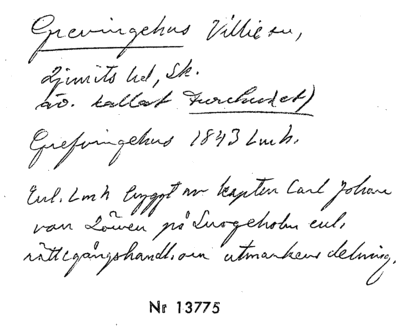 Grevingehus Villie sn,
Ljunits hd, Sk.
äv. kallat
Grefvingehus 1843 Lmk.
Enl. Lmk byggt av kapten Carl Johan
von Löwen på Snogeholm enl.
rättegångshandl. om utmarkens delning.
Nr 13775